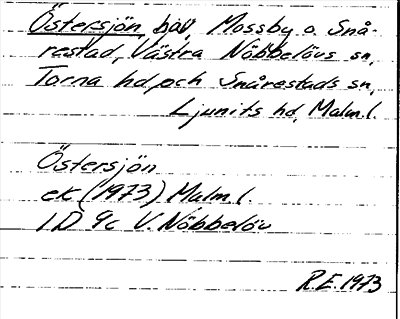 Östersjön, hav, Mossby o. Snå-
restad, Västra Nöbbelövs sn,
Torna hd, och Snårestads sn,
Ljunits hd, Malm.l.
Östersjön
ek (1973) Malm l.
1D 9c V. Nöbbelöv
R.E. 1973